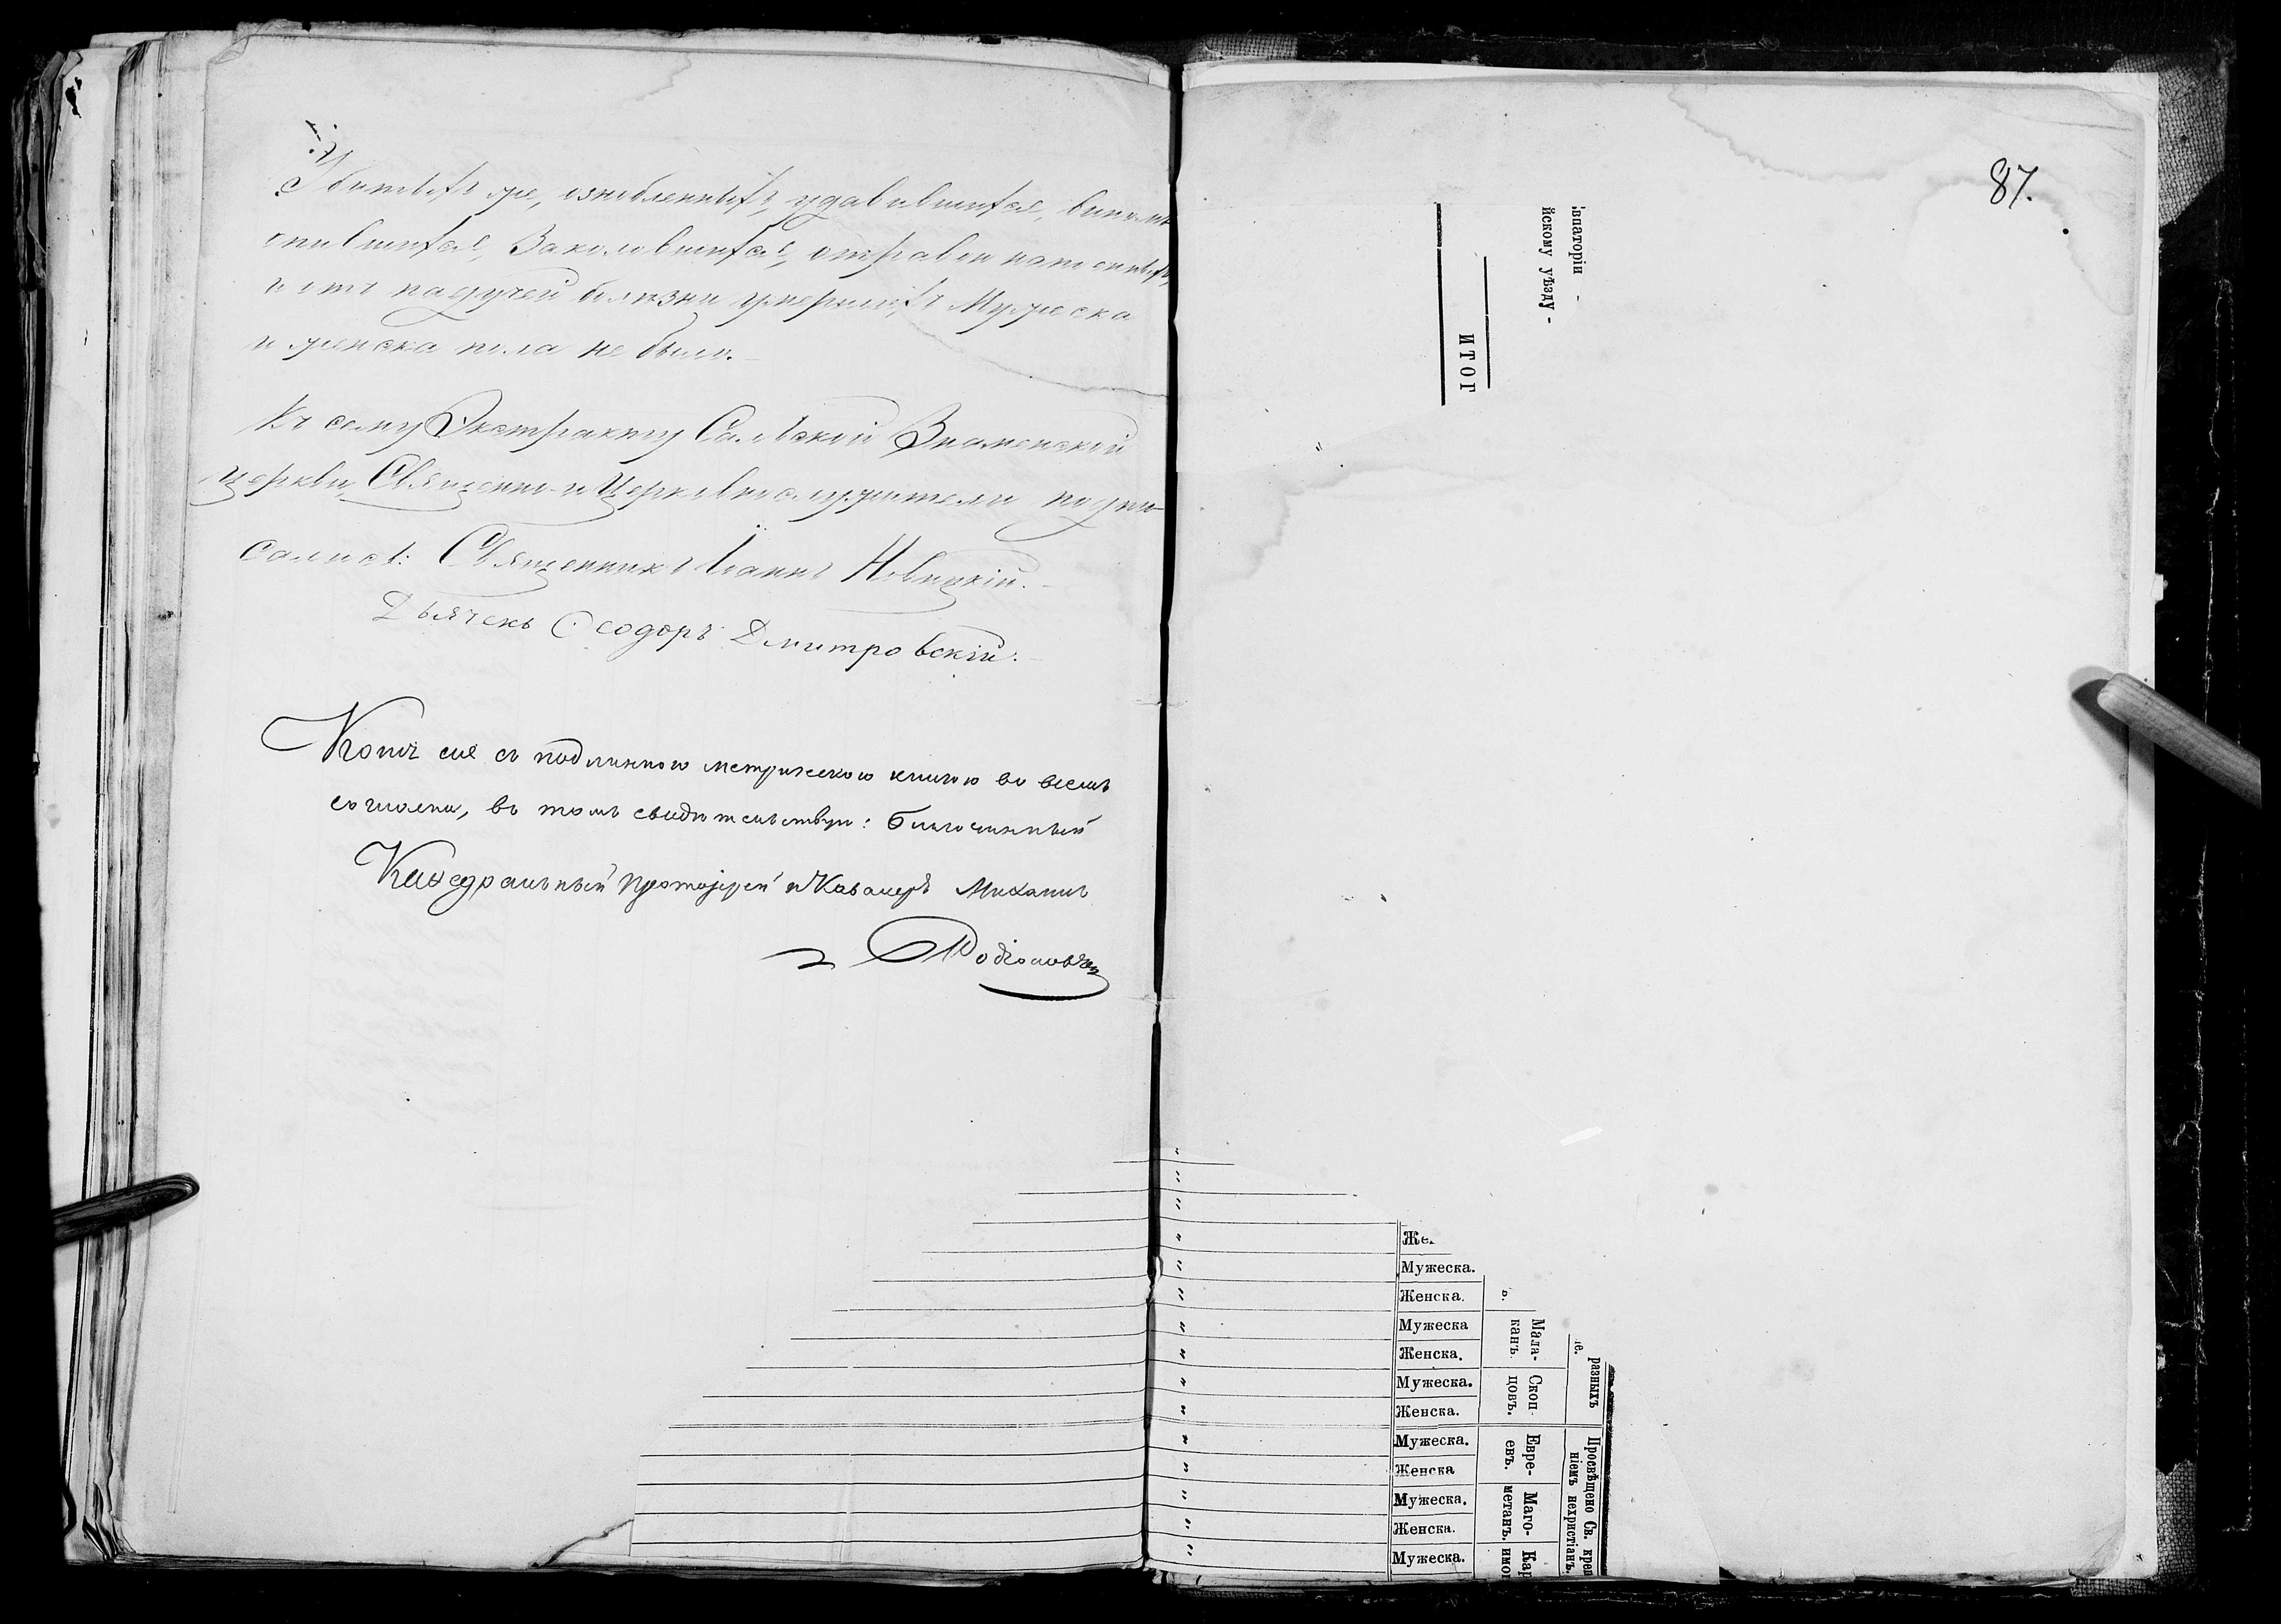 Убитыхъ же, ознобленныхъ, удавившихся, виномъ
опившихся, Заколовшихся, отравленныхъ
и отъ падучей болѣзни умершихъ Мужеска
и женска пола не было.
Къ сему Экстракту Сакской Знаменской
церкви Священно-и Церковнослужители подпи-
сались: Священникъ Іоаннъ Новицкій.
Дьячекъ Ѳеодоръ Дмитровскій.
Копія сія съ подлинною метрическою книгою во всемъ
согласна, въ томъ свидѣтельствую: благочинный
Каѳедральный Протоіерей и Кавалеръ Михаилъ
Родіоновъ
87.
впаторіи -
йскому уѣзду -
ИТОГ
Же
Мужеска.
Женска.
ъ.
Мужеска
Женска.
Мала-
канъ.
Мужеска.
Женска.
Скоп-
цовъ.
іе.
разныхъ
Мужеска.
Женска
Евре-
евъ.
Мужеска.
Женска.
Маго-
метанъ.
Мужеска.
Кар
имо
Просвѣщено Св. крещ
ніемъ нехристіанъ.